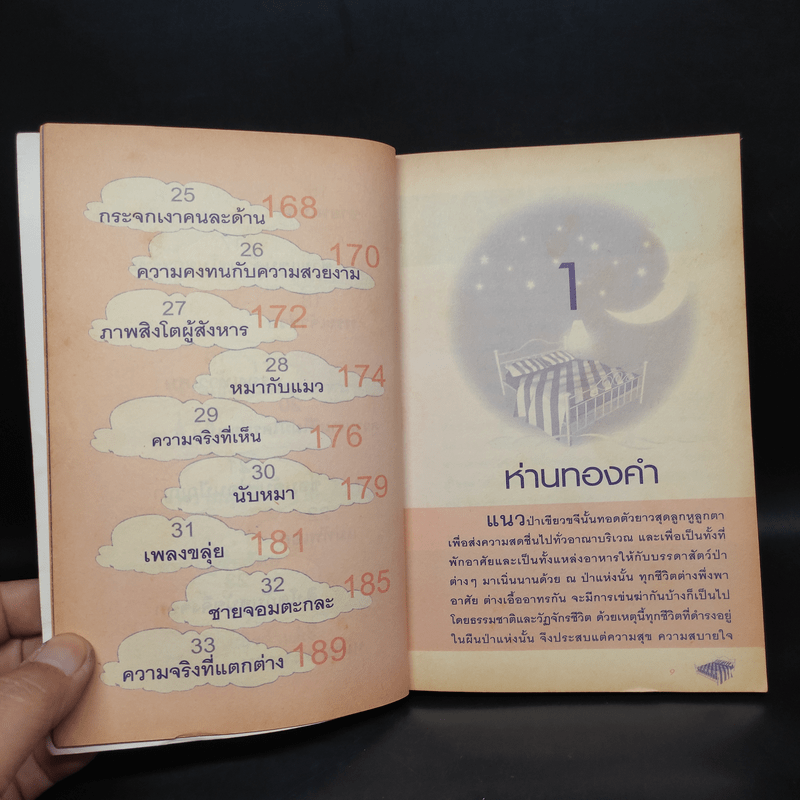 25
กระจกเงาคนละด้าน 168
26
ความคงทนกับความสวยงาม 170
27
ภาพสิงโตผู้สังหาร 172
28
หมากับแมว 174
29
ความจริงที่เห็น 176
30
นับหมา 179
31
เพลงขลุ่ย 181
32
ชายจอมตะกละ 185
33
ความจริงที่แตกต่าง 189
1
ห่านทองคำ
แนวป่าเขียวขจีนั้นทอดตัวยาวสุดลูกหูลูกตา
เพื่อส่งความสดชื่นไปทั่วอาณาบริเวณ และเพื่อเป็นทั้งที่
พักอาศัยและเป็นทั้งแหล่งอาหารให้กับบรรดาสัตว์ป่า
ต่างๆ มาเนิ่นนานด้วย ณ ป่าแห่งนั้น ทุกชีวิตต่างพึ่งพา
อาศัย ต่างเอื้ออาทรกัน จะมีการเข่นฆ่ากันบ้างก็เป็นไป
โดยธรรมชาติและวัฏจักรชีวิต ด้วยเหตุนี้ทุกชีวิตที่ดำรงอยู่
ในผืนป่าแห่งนั้น จึงประสบแต่ความสุข ความสบายใจ